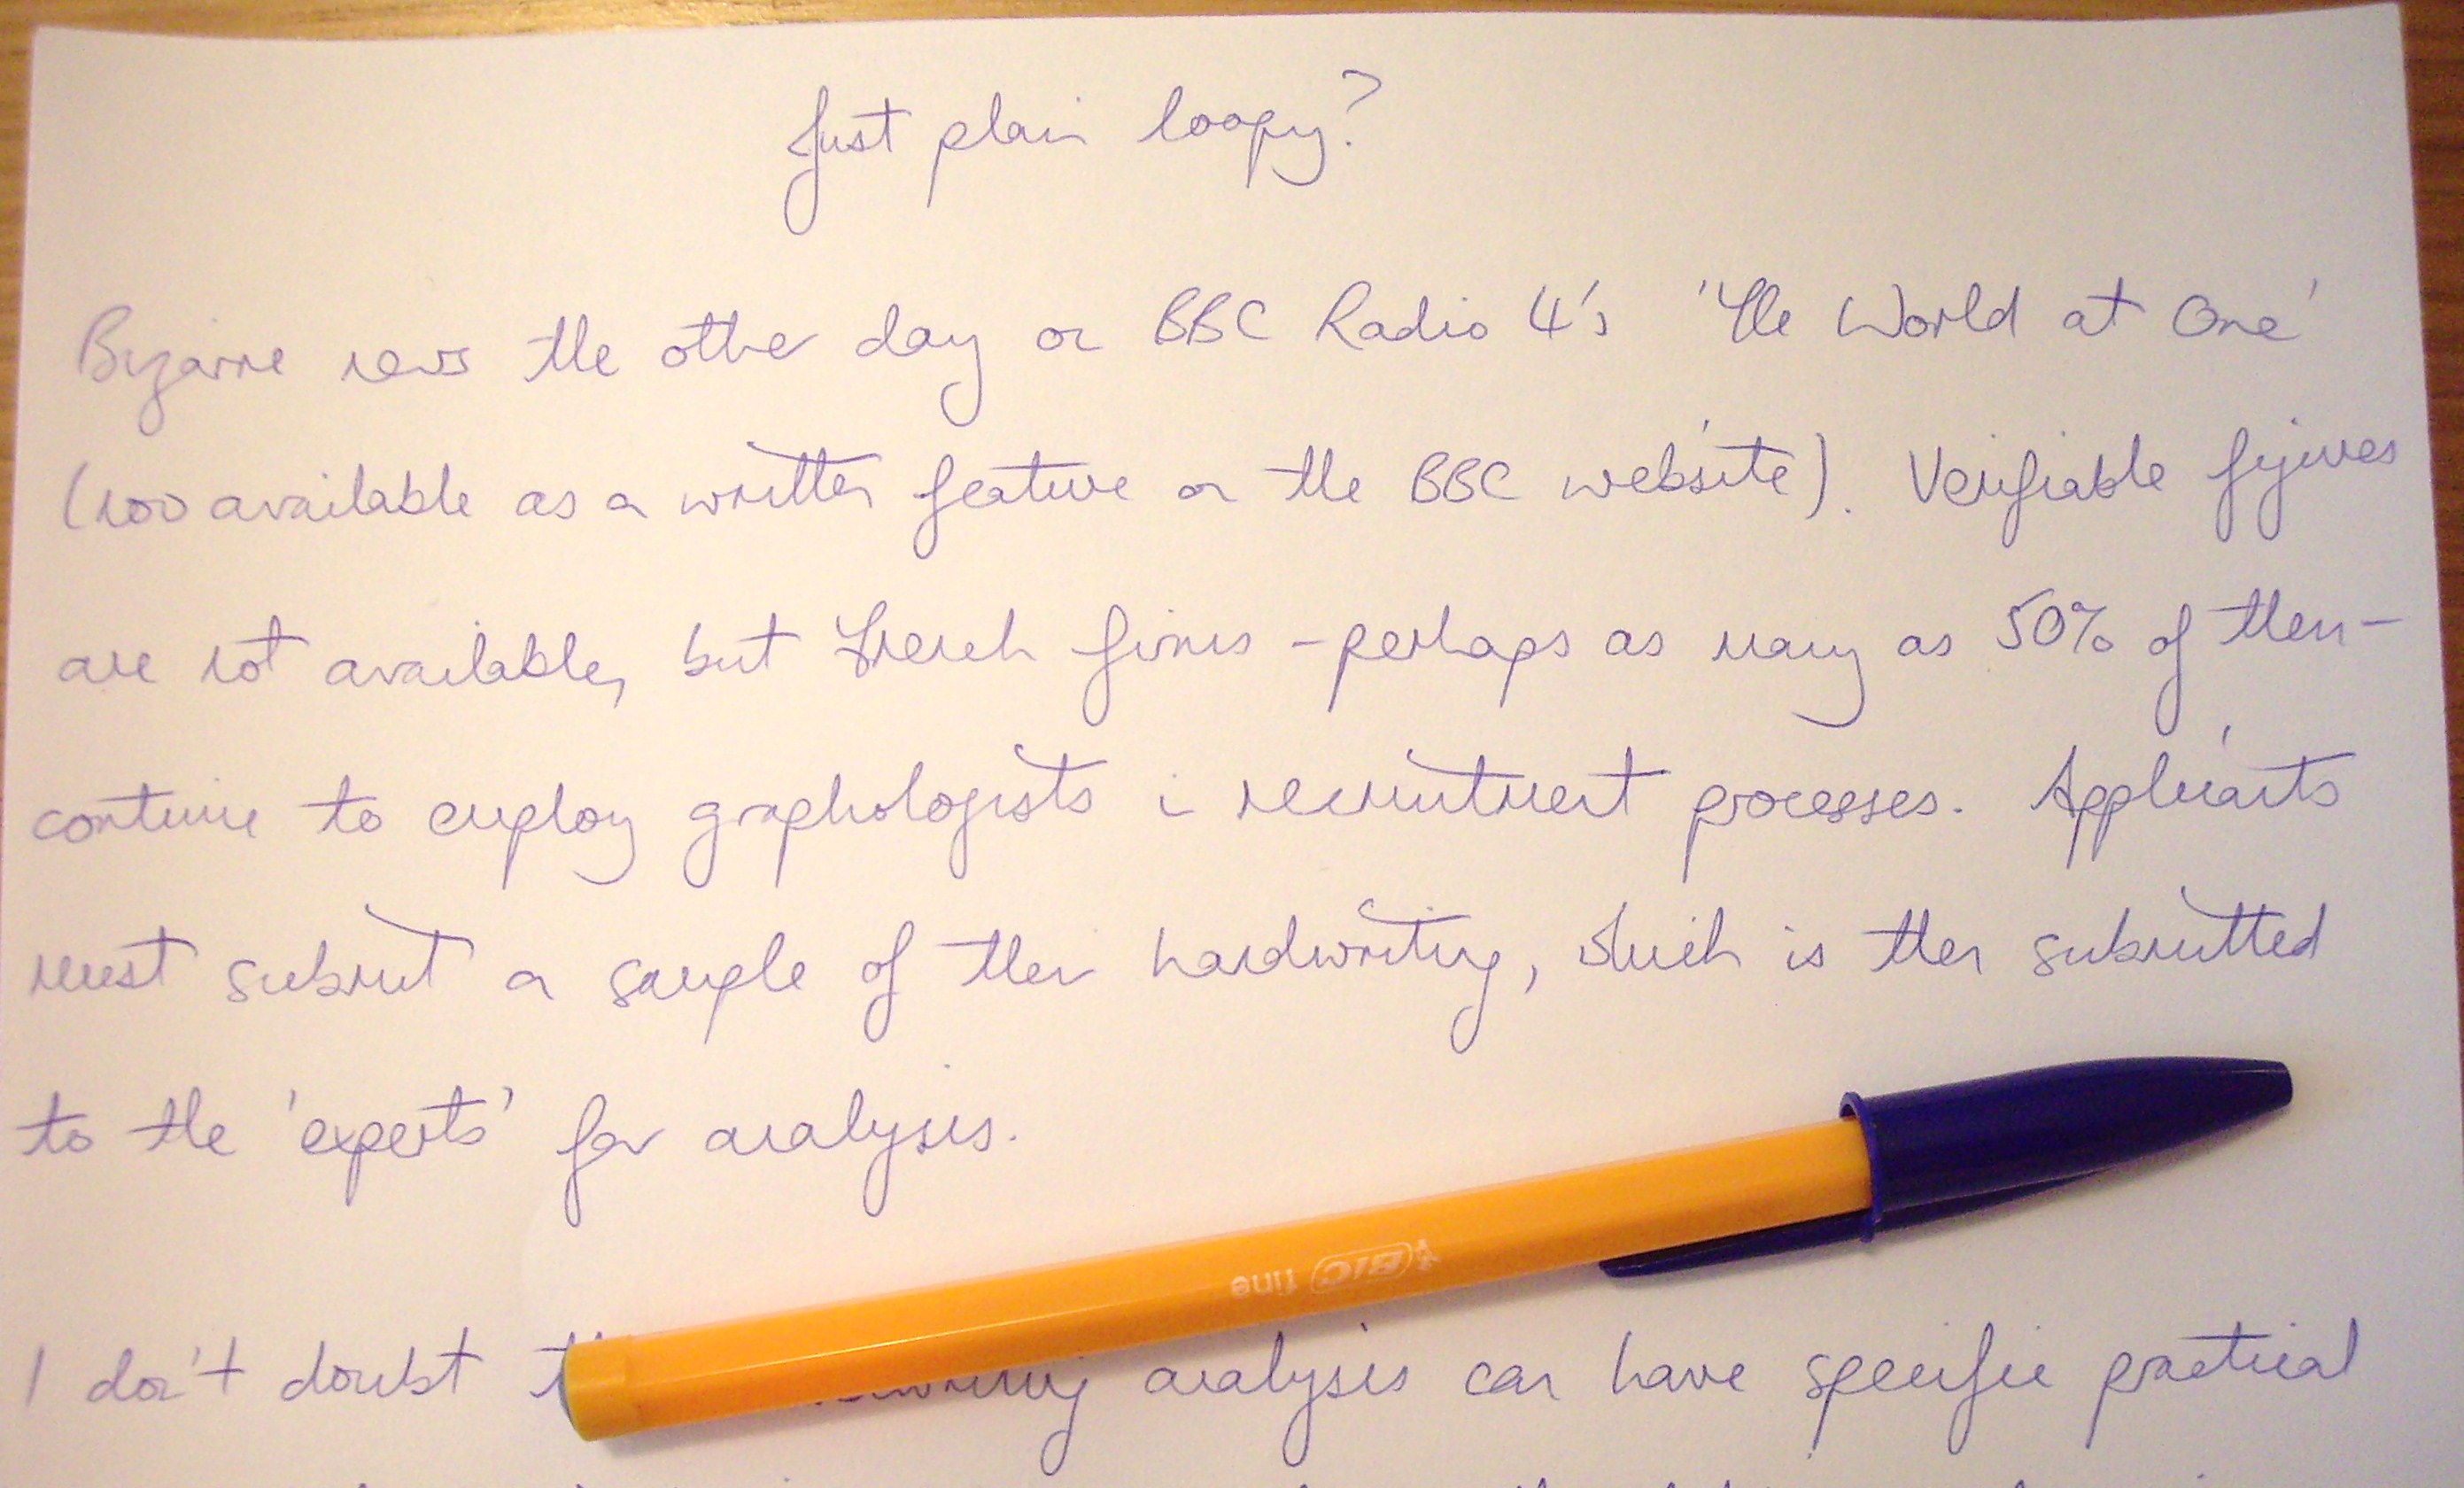 Just plain loopy?
Bizarre news the other day on BBC Radio 4's 'The World at One'
(now available as a written feature on the BBC website). Verifiable figures
are not available, but French firms - perhaps as many as 50% of them -
continue to employ graphologists in recruitment processes. Applicants
must submit a sample of their handwriting, which is then submitted
to the 'experts' for analysis.
BIC fine
I don't doubt analysis can have specific practical